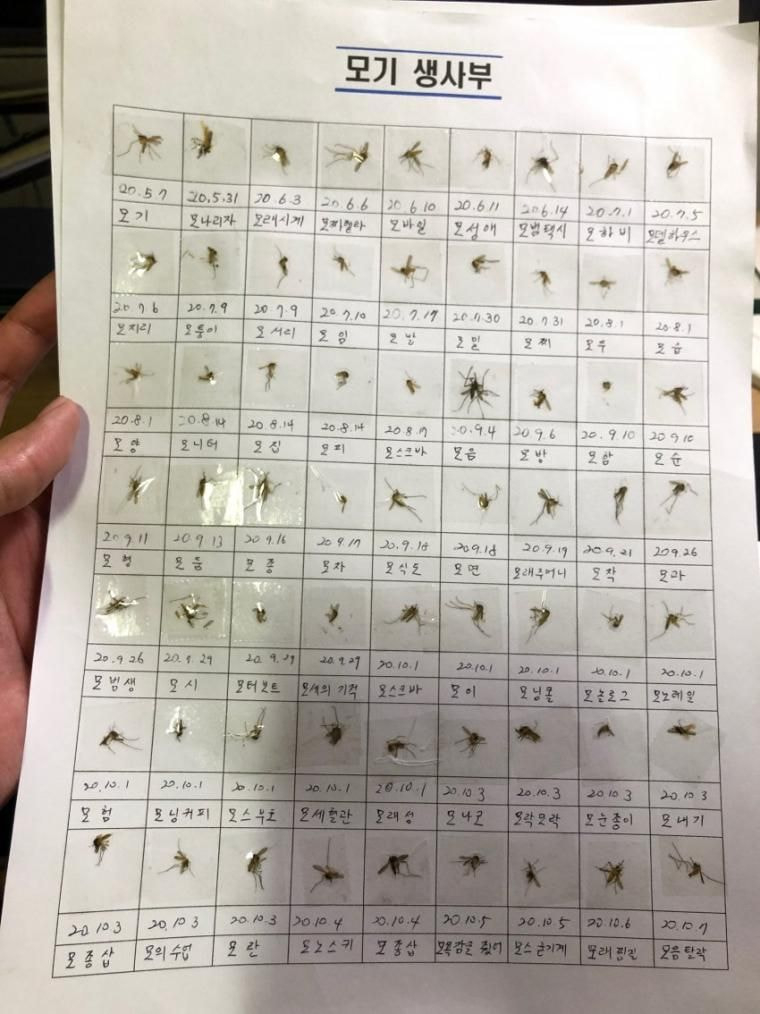 모기 생사부
20.5.7 20.5.31 20.6.3 20.6.6 20.6.10 20.6.11 20.6.14 20.7.1 20.7.5
모기 모나리자 모래시계 모짜렐라 모바일 모성애 모범택시 모하비 모델하우스
20.7.6 20.7.9 20.7.9 20.7.10 20.7.17 20.7.30 20.7.31 20.8.1 20.8.1
모지리 모퉁이 모서리 모임 모발 모밀 모찌 모두 모습
20.8.1 20.8.14 20.8.14 20.8.14 20.8.17 20.9.4 20.9.6 20.9.10 20.9.10
모양 모니터 모집 모피 모스크바 모음 모방 모함 모순
20.9.11 20.9.13 20.9.16 20.9.17 20.9.18 20.9.18 20.9.19 20.9.21 20.9.26
모형 모둠 모종 모자 모식도 모면 모래주머니 모작 모과
20.9.26 20.9.29 20.9.29 20.9.29 20.10.1 20.10.1 20.10.1 20.10.1 20.10.1
모범생 모시 모터보트 모세의 기적 모스크바 모이 모닝콜 모놀로그 모노레일
20.10.1 20.10.1 20.10.1 20.10.1 20.10.1 20.10.3 20.10.3 20.10.3 20.10.3
모험 모닝커피 모스부호 모세혈관 모래성 모나코 모락모락 모눈종이 모내기
20.10.3 20.10.3 20.10.3 20.10.4 20.10.4 20.10.5 20.10.5 20.10.6 20.10.7
모종삽 모의수업 모란 모노스키 모종삽 모스 굳기계 모래찜질 모음탈락